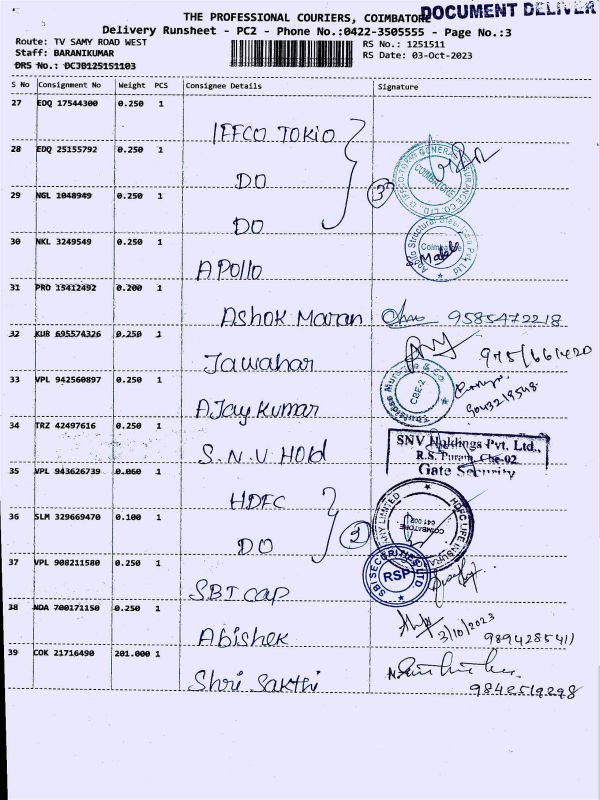 DOCUMENT DELIVER
THE PROFESSIONAL COURIERS, COIMBATORE
Delivery Runsheet - PC2 - Phone No.:0422-3505555 - Page No.:3
Route: TV SAMY ROAD WEST
RS No.: 1251511
Staff: BARANIKUMAR
RS Date: 03-Oct-2023
DRS No.: DCJB125151103
S No Consignment No Weight PCS Consignee Details Signature
27 EDQ 17544300 0.250 1
IFFCO TOKIO
28 EDQ 25155792 0.250 1
DO
29 NGL 1048949 0.250 1
DO
3
COIMBATORE
30 NKL 3249549 0.250 1
APOllo
31 PRO 13412492 0.200 1
Ashok Maran 9585472218
32 KUB 695574326 0.250 1
Jawahar
33 VPL 942560897 0.250 1
CBE-2
AJay Kumar
34 TRZ 42497616 0.250 1
S.N.V Hold
SNV Holdings Pvt. Ltd.,
R.S. Puram, Cbe-02
Gate Security
35 VPL 943626739 0.060 1
HDFC
36 SLM 329669470 0.100 1
DO
2
COIMBATORE
641 002
37 VPL 908211580 0.250 1
SBI SECURITIES LTD
RSP
SBI cap
38 NDA 700171150 0.250 1
Abishek
3/10/2023
9894285411
39 COK 21716490 201.000 1
Shri Sakthi
9842519298